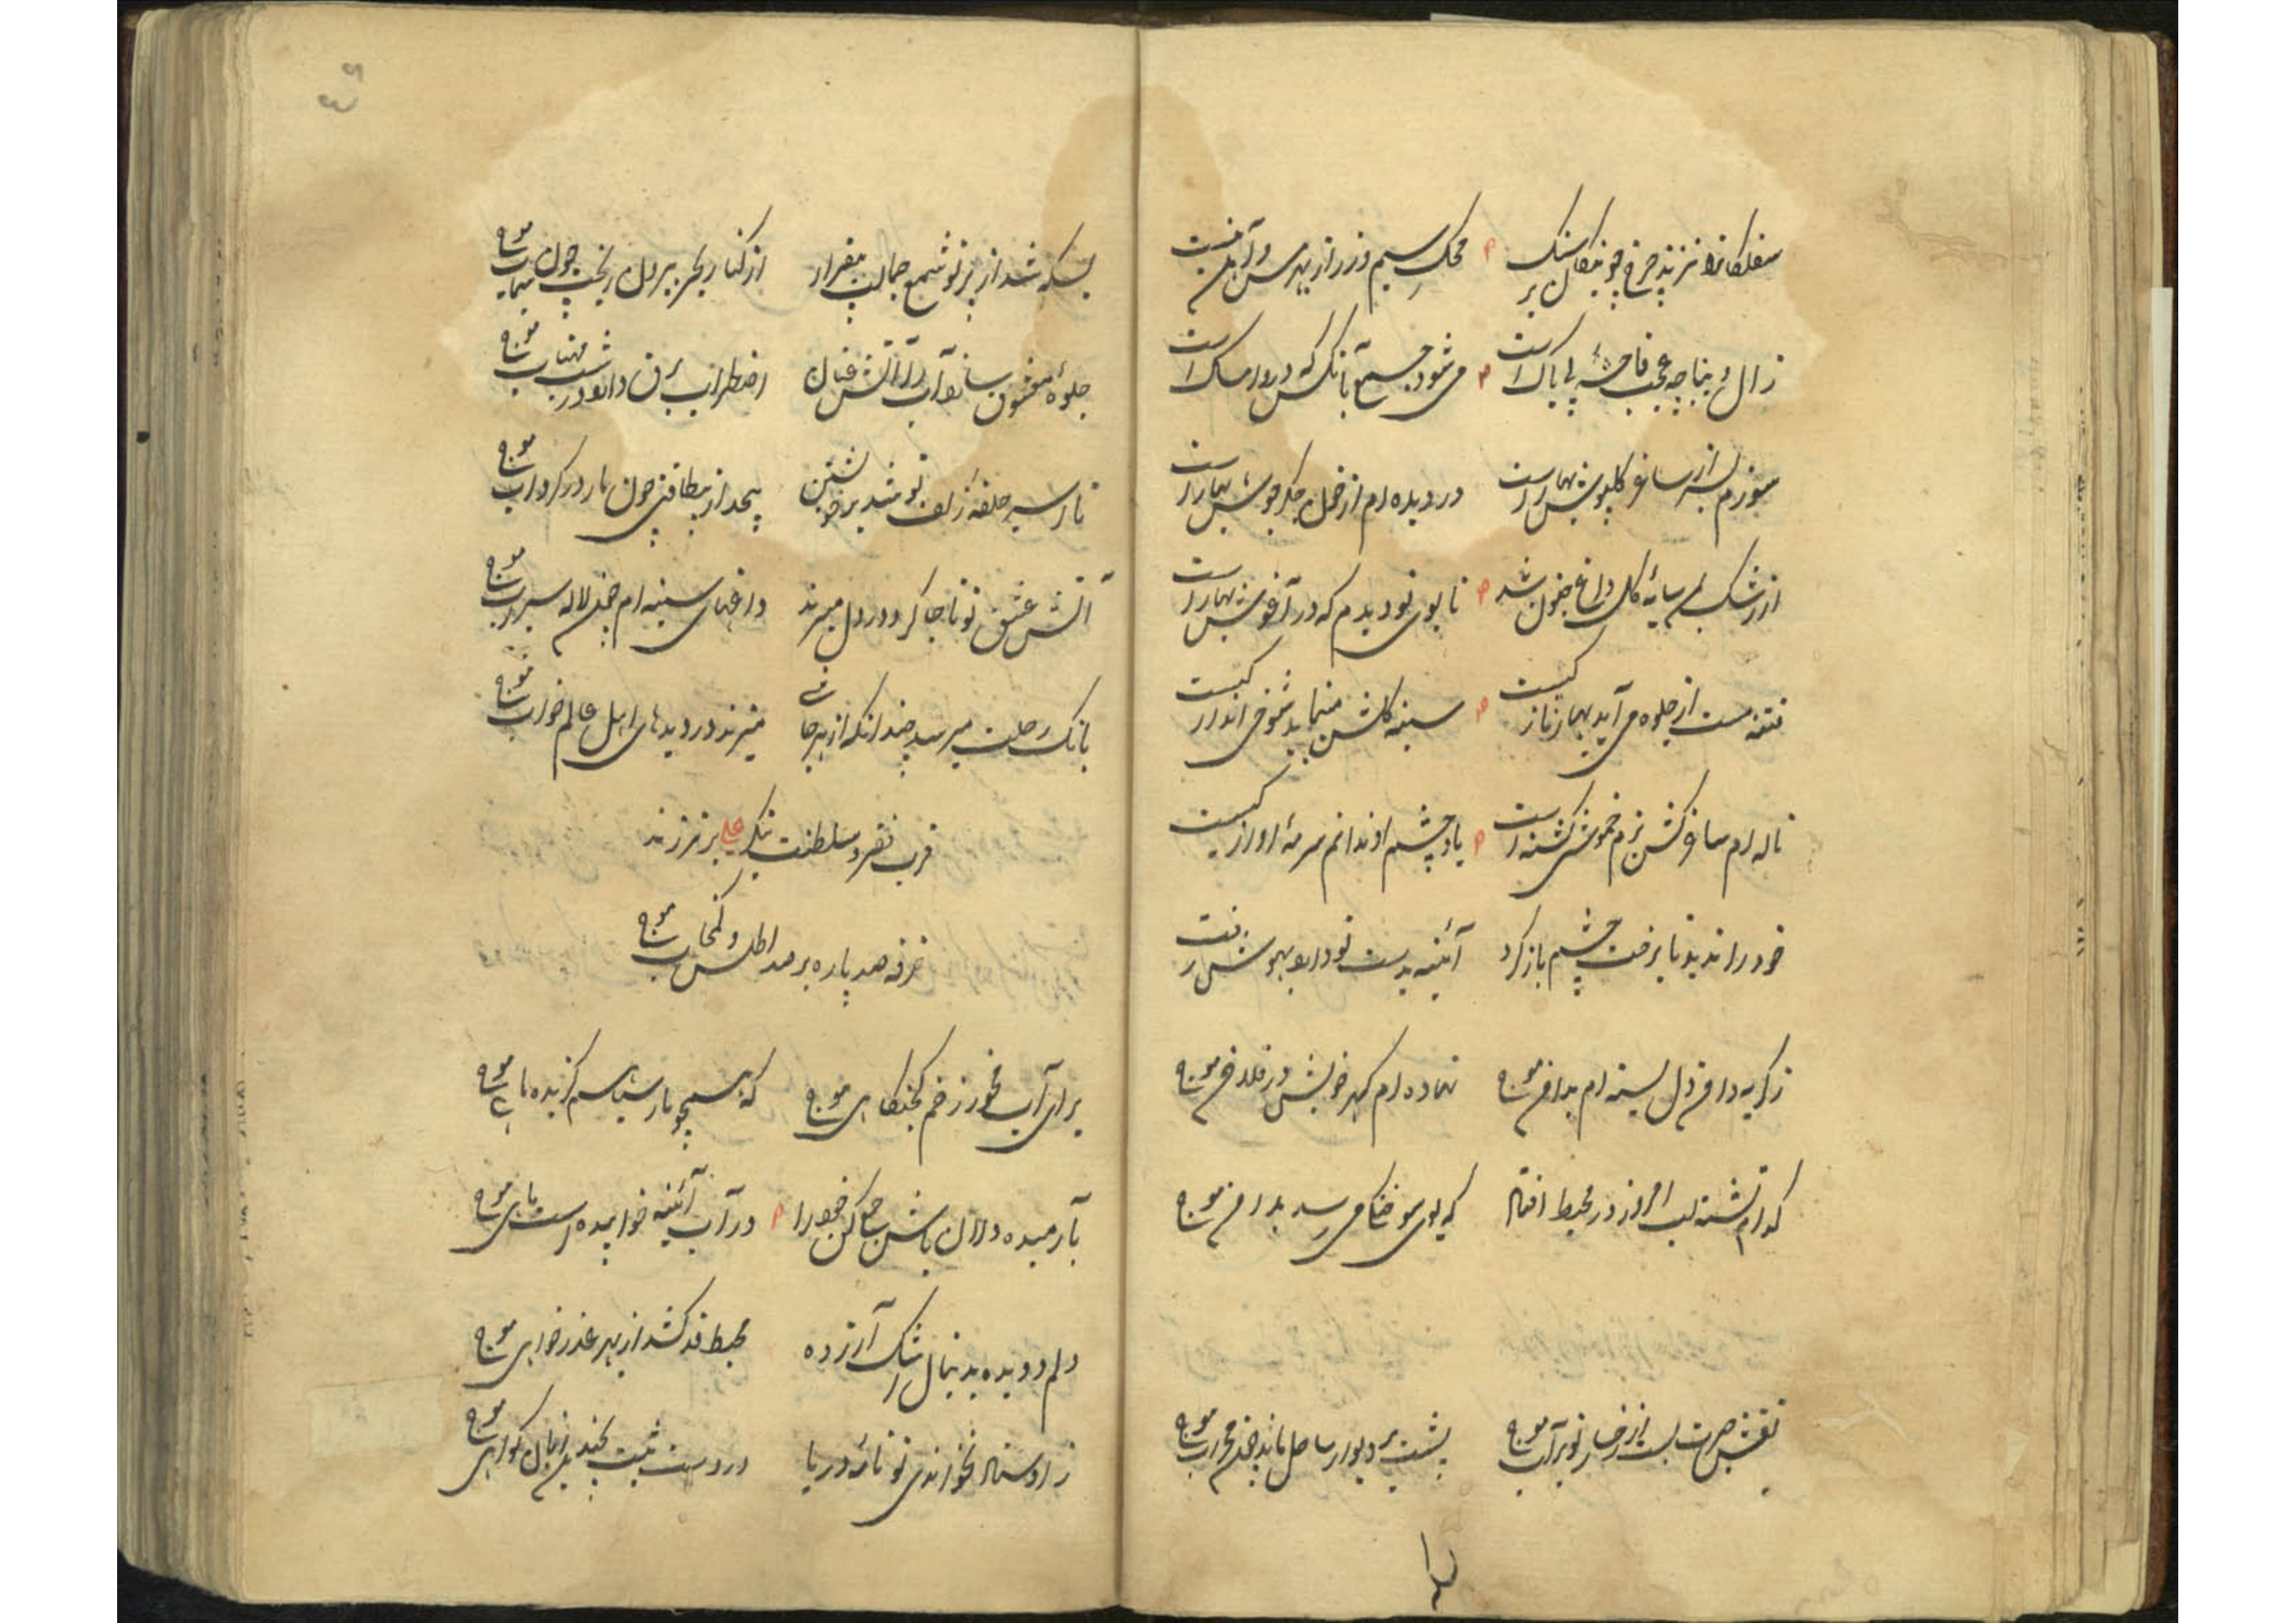 سفلکانرا نزند چرخ چو نیکان بر سنک محک سیم و زر از بهر مس و آهن نیست
زال دنیا چه عجب فاحشهٔ بی باک است می شود جمع بآنکس که درو امساک است
سوزم ز ساغر کلپوش بهار است در دیده ام از خون جکر جوش بهار است
از رشک سایهٔ کل داغ جنون شد تا بوی تو دیدم که در آغوش بهار است
فتنه مست از جلوه می آید بهار ناز کیست سینه کلشن مینماید شوخی انداز کیست
ناله ام ساغر کش بزم خموشی کشته است یاد چشم او ندانم سرمهٔ آواز کیست
خود را ندید تا برخت چشم باز کرد آئینه بدست تو داد و بهوش رفت
ز کریه داغ دل سینه ام بداغ موج نهاده ام کهر خویش در فلاغ موج
کدام تشنه لب امروز در محیط افتاد که بوی سوختکی میرسد بداغ موج
نقش حیرت بست از رخسار تو بر آب موج پشت بر دیوار ساحل ماند چون محراب موج
بسکه شد از پرتو شمع جمالت بیقرار از کنار بحر بیرون ریخت چون سیماب موج
جلوهٔ معشوق سازد آب را آتش فشان اضطراب برق دارد در شب مهتاب موج
تا اسیر حلقهٔ زلف تو شد بر خویشتن پیچد از بیطاقتی چون مار در کرداب موج
آتش عشق تو تا جا کرد در دل میزند داغهای سینه ام چون لالهٔ سیراب موج
بانک رحلت میرسد چندانکه از هر جانبی میزند در دیدهای اهل عالم خواب موج
قرب فقر و سلطنت بنکر علی بر هم زند
خرقه صد پاره بر صد اطلس و کمخاب موج
برای آب مخور زخم کجکلاهی موج که همچو مار سیاسم کزیده ماهی موج
بآرمیده دلان باش جمع کن خود را در آب آئینه خوابیده است ماهی موج
دلم دویده بدنبال اشک آزرده محیط قد کشد از بهر عذر خواهی موج
ز اوستاد نخواندی تو نامهٔ دریا درست ثبت بخند زبان کواهی موج